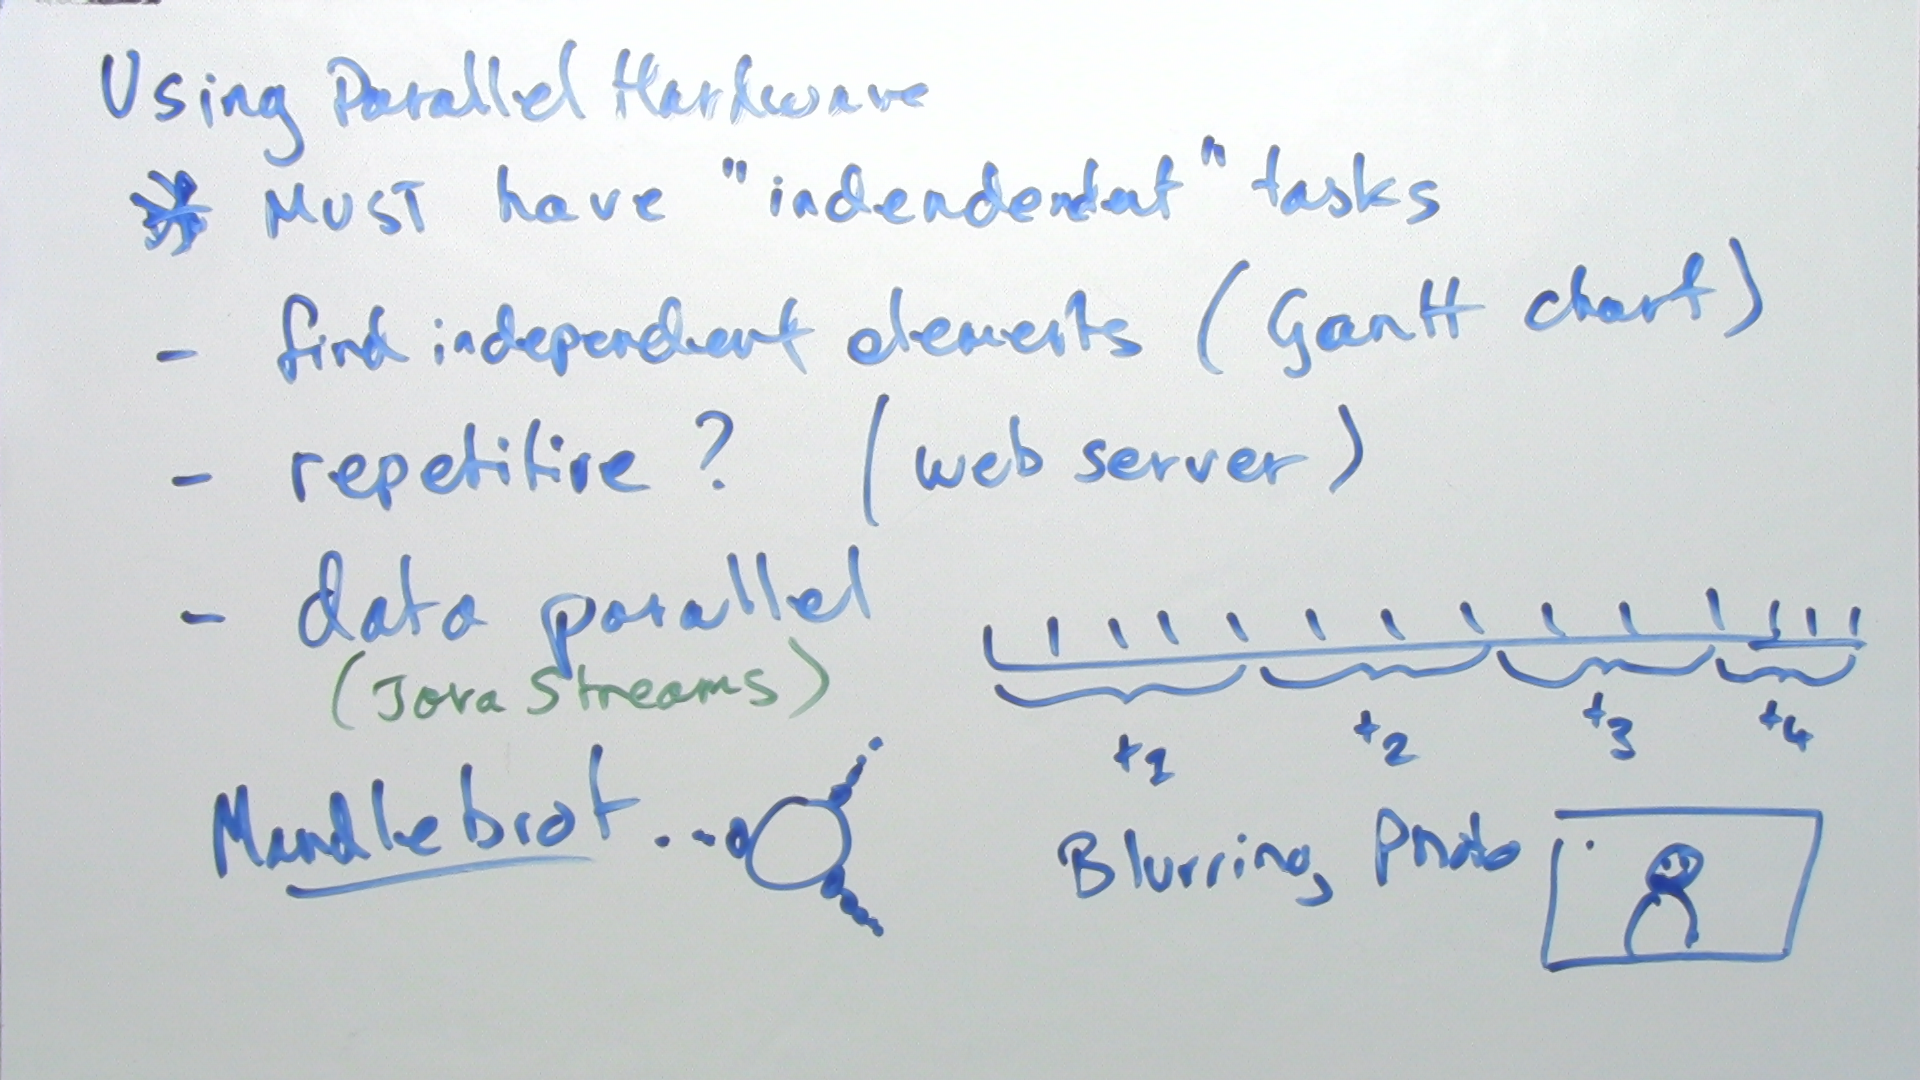 Using Parallel Hardware
* MUST have "indendendent" tasks
- find independent elements (Gantt chart)
- repetitive ? (web server)
- data parallel
(Java Streams)
t1 t2 t3 t4
Mandlebrot
Blurring Photo